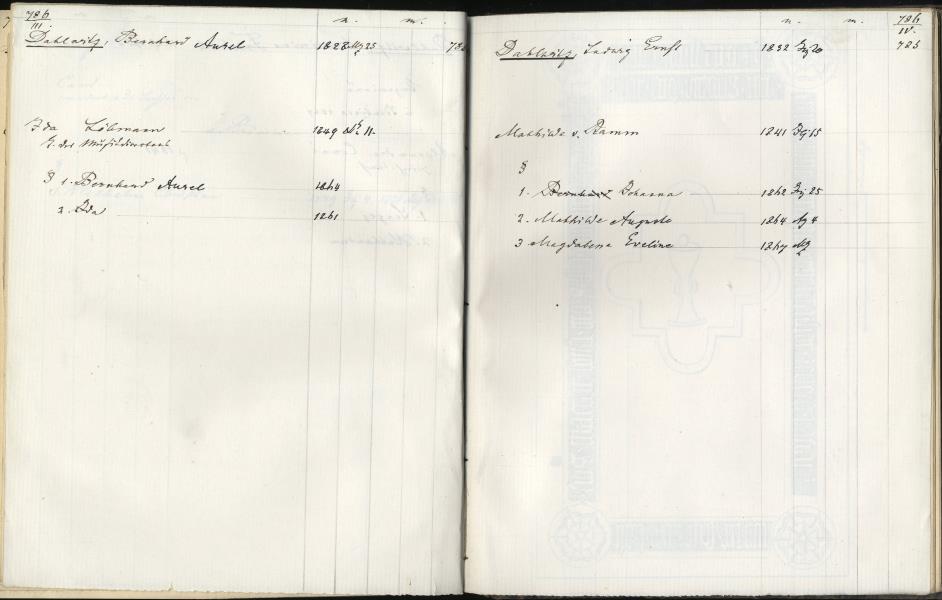 786 n. m.
III.
Dahlwitz, Bernhard Aurel 1828 Mz 25 785
Ida Löbmann 1849 11.
T. des Musikdirectors
§ 1. Bernhard Aurel 1864
2. Ida 1861
n. m. 786
IV.
Dahlwitz, Ludwig Ernst 1832 20 785
Mathilde v. Ramm 1841 15
§
1. Bernhard Johanna 1862 25
2. Mathilde Auguste 1864 Ag 4
3 Magdalena Eveline 1867 Mz